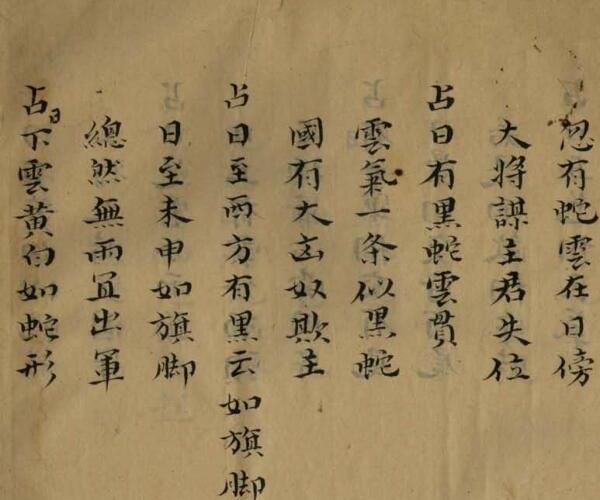 忽有蛇雲在日傍
大将謀主君失位
占日有黒蛇雲貫
雲氣一条似黒蛇
國有大凶奴欺主
占日至西方有黒云如旗脚
日至未申如旗脚
總然無雨宜出軍
占日下雲黄白如蛇形